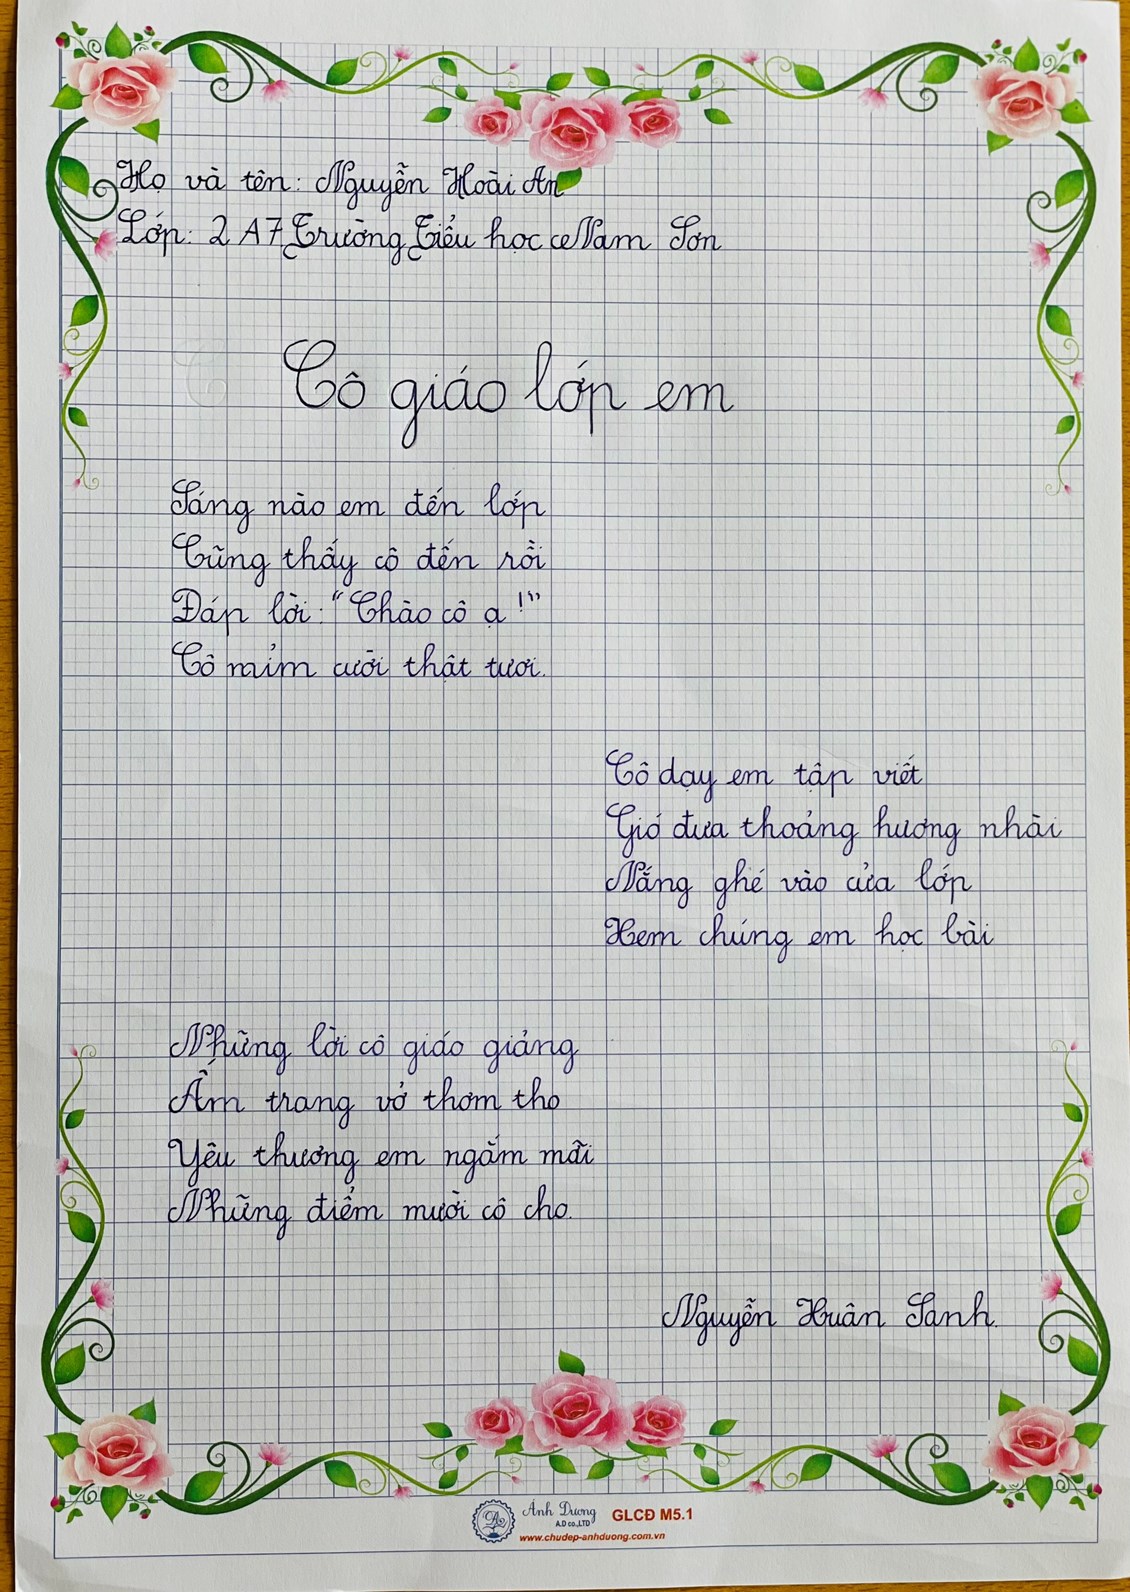 Họ và tên: Nguyễn Hoài An
Lớp: 2A7 Trường Tiểu học Nam Sơn
Cô giáo lớp em
Sáng nào em đến lớp
Cũng thấy cô đến rồi
Đáp lời: "Chào cô ạ!"
Cô mỉm cười thật tươi.
Cô dạy em tập viết
Gió đưa thoảng hương nhài
Nắng ghé vào cửa lớp
Xem chúng em học bài
Những lời cô giáo giảng
Ấm trang vở thơm tho
Yêu thương em ngắm mãi
Những điểm mười cô cho.
Nguyễn Xuân Sanh.
Ánh Dương
A.D co.,LTD
GLCĐ M5.1
www.chudep-anhduong.com.vn